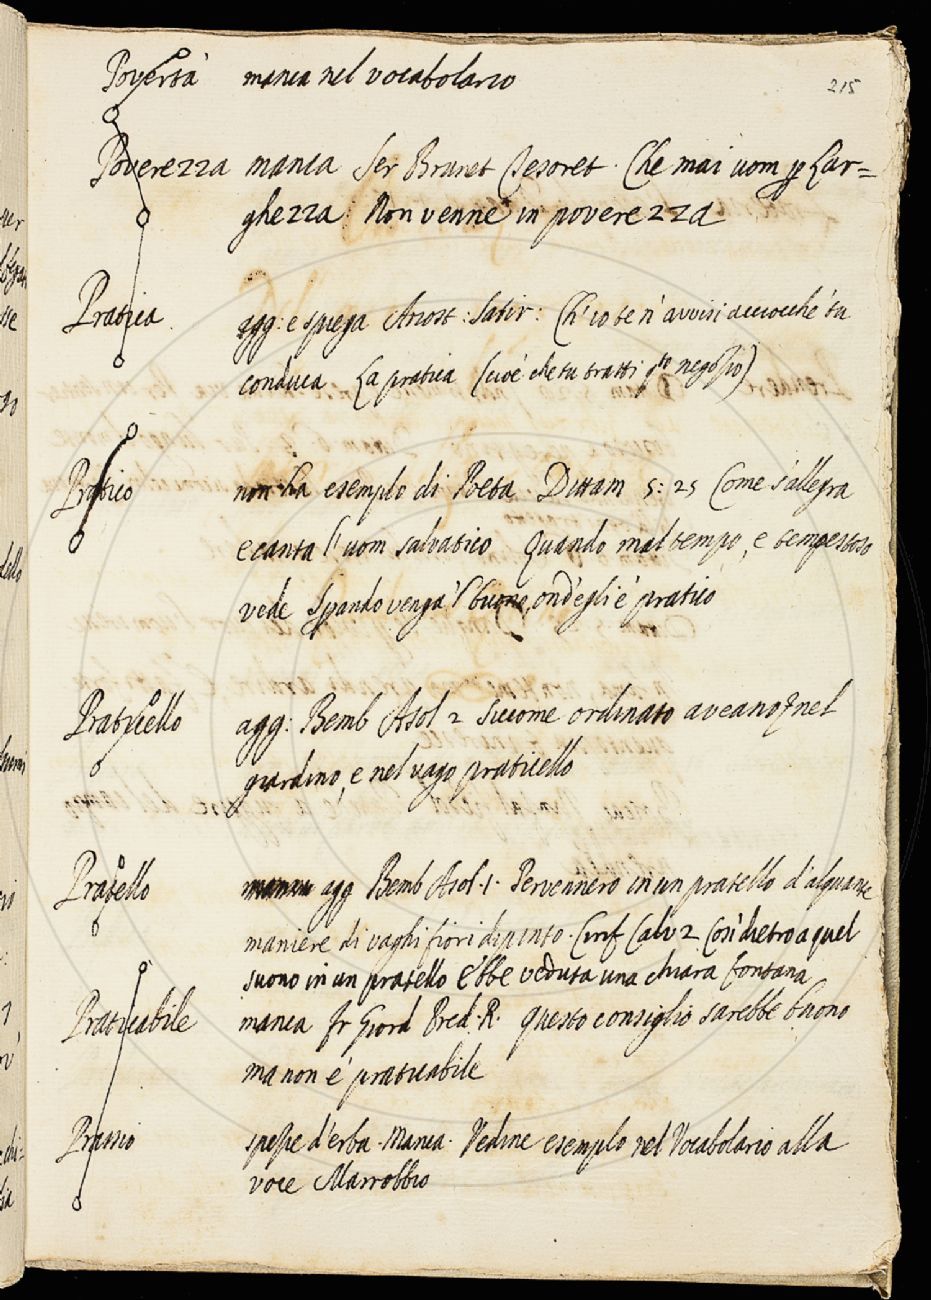 215
Povertà manca nel vocabolario
Poverezza manca Ser Brunet Tesoret. Che mai uom p Lar=
ghezza Non venne in poverezza
Pratica agg: e spiega Ariost: Satir: Ch'io te n'avvisi acciocché tu
conduca La pratica (cioè che tu tratti qto negozio)
Pratico non ha esempio di Poeta. Dittam 5: 25 Come s'allegra
e canta l'uom salvatico Quando mal tempo, e tempestoso
vede Sperando venga 'l buono, ond'egli è pratico
Praticello agg: Bemb Asol 2 siccome ordinato aveano, nel
giardino, e nel vago praticello
Pratello agg Bemb Asol. 1. Pervennero in un pratello d'alquante
maniere di vaghi fiori dipinto. Cirif Calv 2 Così dietro a quel
suono in un pratello Ebbe veduta una chiara fontana
Praticabile manca Fr Giord Pred. R. questo consiglio sarebbe buono
ma non è praticabile
Prassio spezie d'erba. Manca. Vedine esempio nel Vocabolario alla
voce Marrobbio